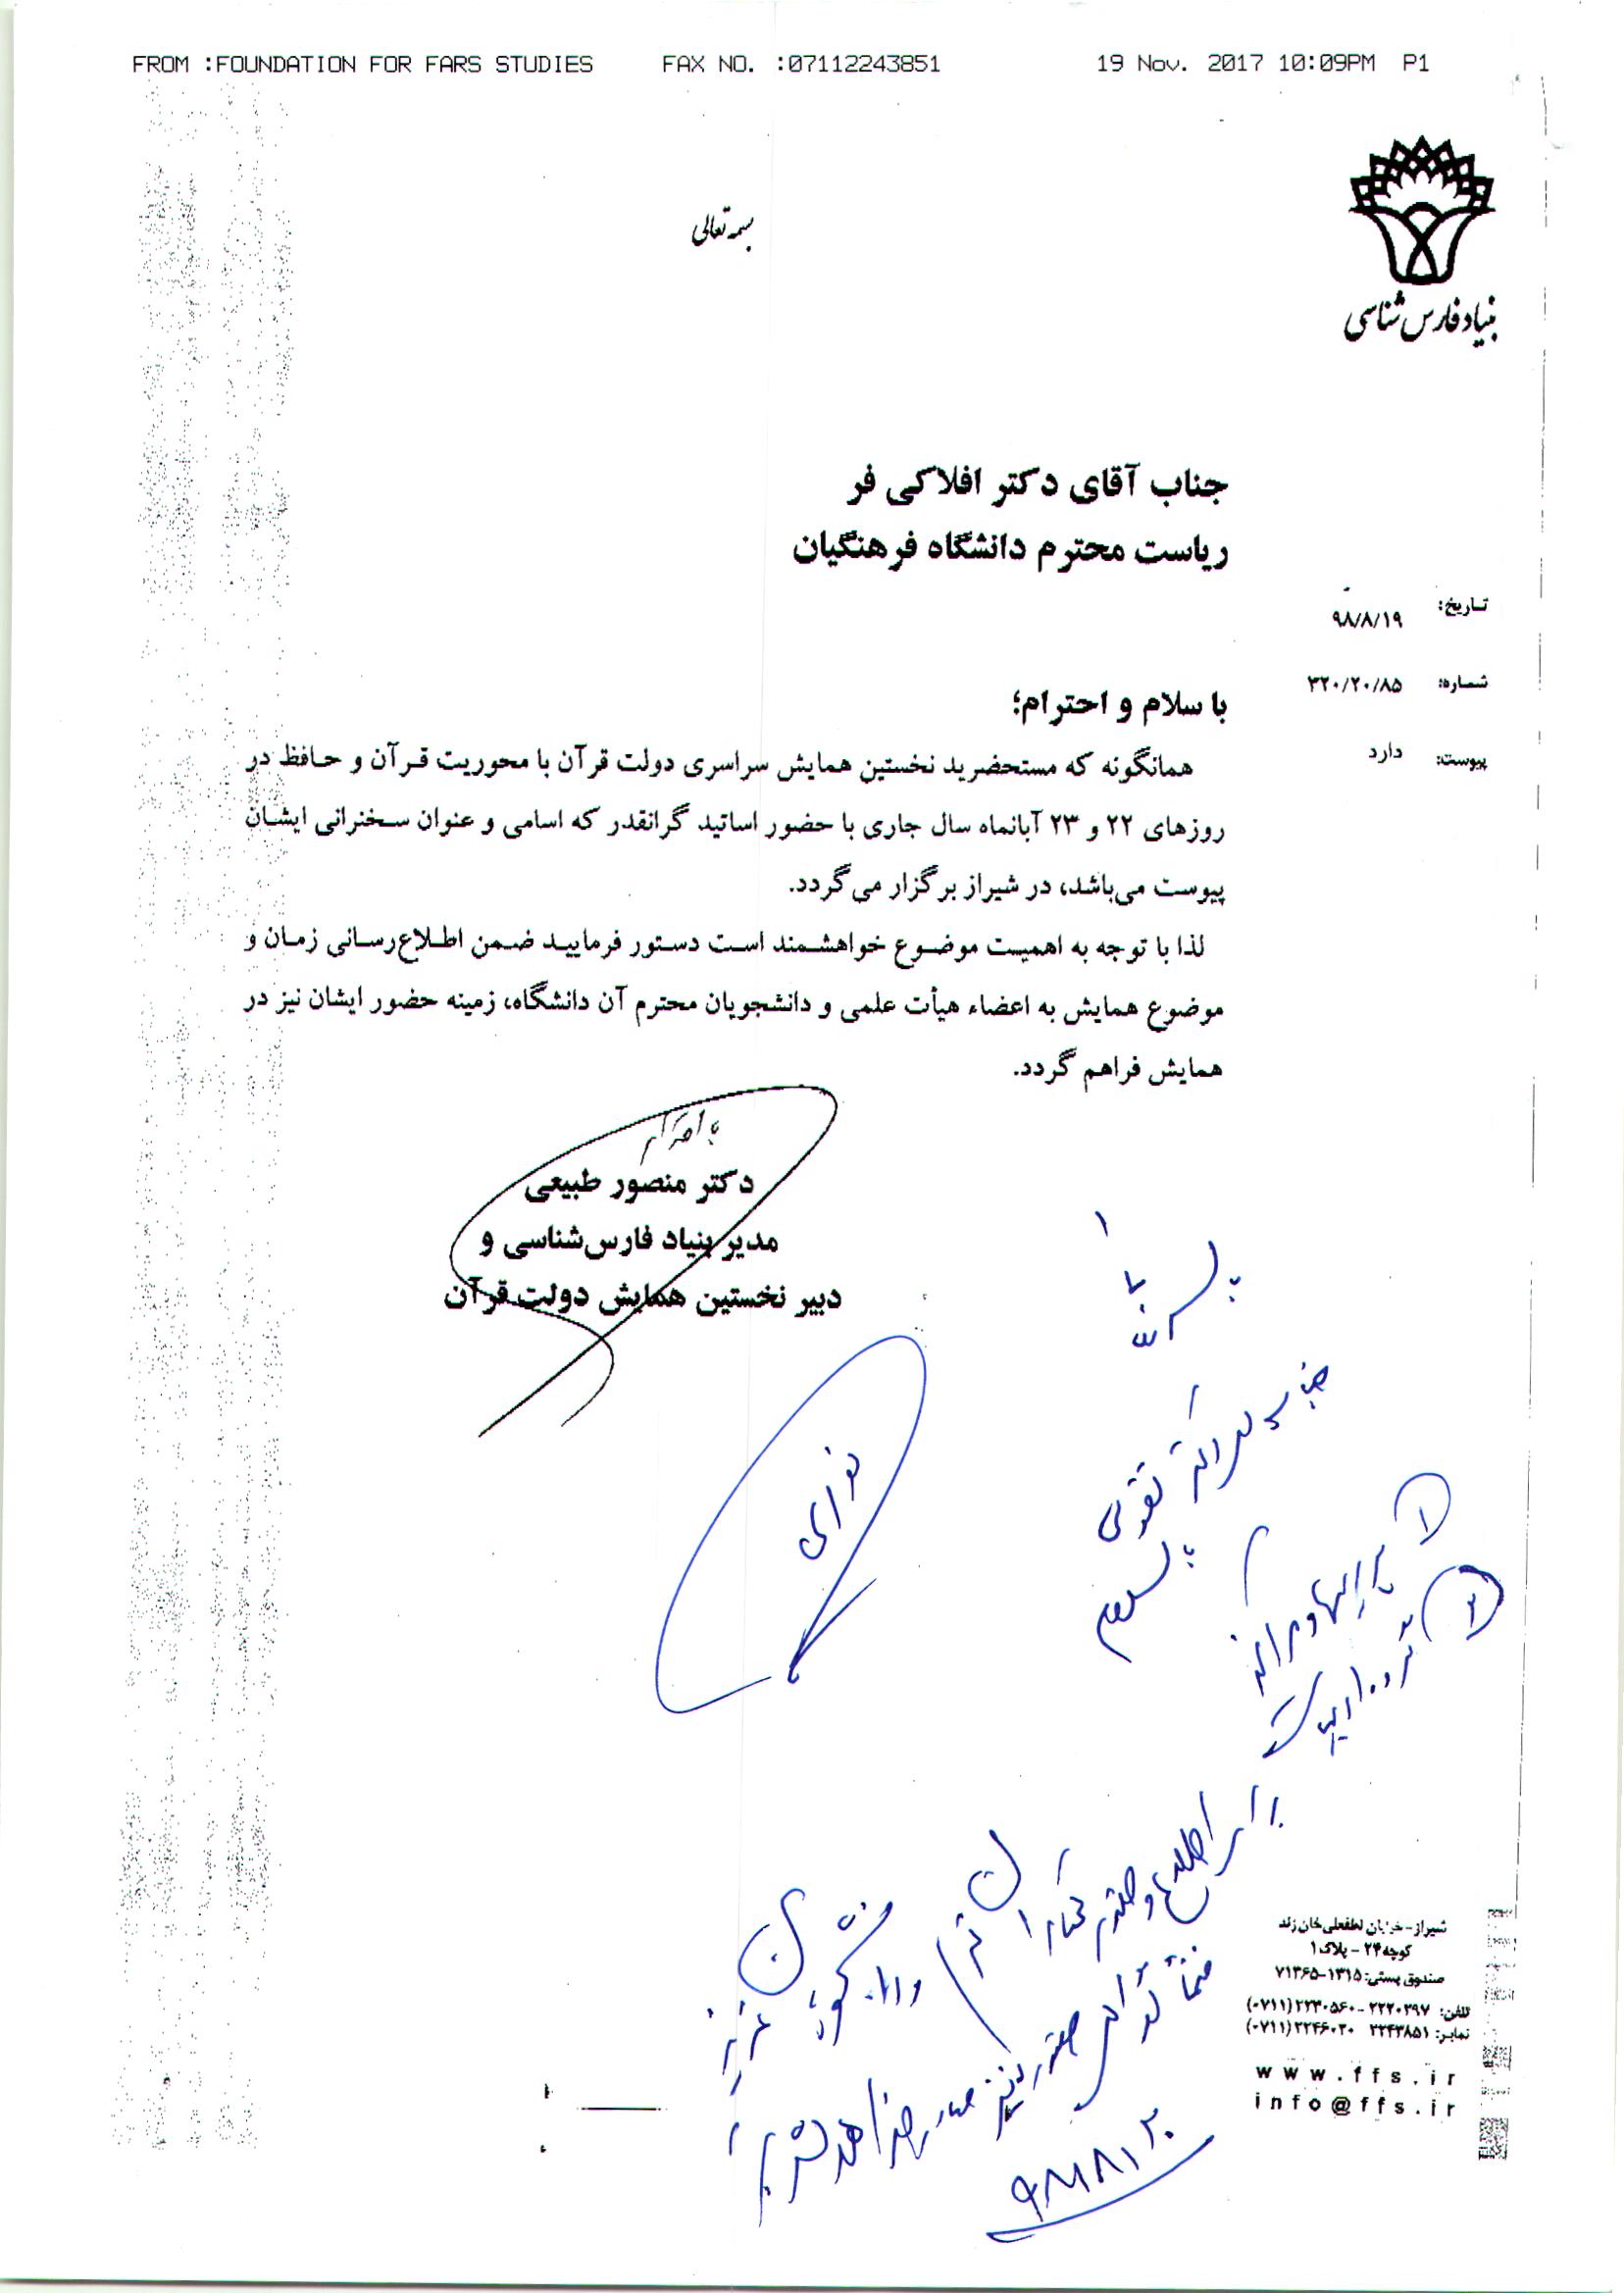 FROM :FOUNDATION FOR FARS STUDIES FAX NO. :07112243851 19 Nov. 2017 10:09PM P1
بسمه تعالی
بنیاد فارس شناسی
جناب آقای دکتر افلاکی فر
ریاست محترم دانشگاه فرهنگیان
تاریخ: ۹۸/۸/۱۹
شماره: ۳۲۰/۲۰/۸۵
پیوست: دارد
با سلام و احترام؛
همانگونه که مستحضرید نخستین همایش سراسری دولت قرآن با محوریت قرآن و حافظ در
روزهای ۲۲ و ۲۳ آبانماه سال جاری با حضور اساتید گرانقدر که اسامی و عنوان سخنرانی ایشان
پیوست می‌باشد، در شیراز برگزار می‌گردد.
لذا با توجه به اهمیت موضوع خواهشمند است دستور فرمایید ضمن اطلاع‌رسانی زمان و
موضوع همایش به اعضاء هیأت علمی و دانشجویان محترم آن دانشگاه، زمینه حضور ایشان نیز در
همایش فراهم گردد.
با احترام
دکتر منصور طبیعی
مدیر بنیاد فارس‌شناسی و
دبیر نخستین همایش دولت قرآن
جناب دکتر تقوی
باسلام
برای اطلاع و
۹۸/۸/۲۰
شیراز- خیابان لطفعلی خان زند
کوچه ۲۴ - پلاک ۱
صندوق پستی: ۱۳۱۵-۷۱۳۶۵
تلفن: ۲۲۲۰۳۹۷ - ۲۲۳۰۵۶۰(۰۷۱۱)
نمابر: ۲۲۴۳۸۵۱ ۲۲۴۶۰۳۰(۰۷۱۱)
www.ffs.ir
info@ffs.ir